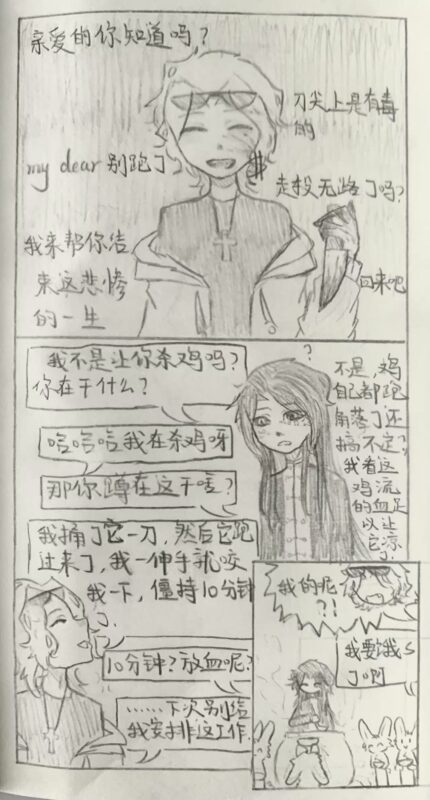 亲爱的你知道吗?
刀尖上是有毒
的
my dear 别跑了
走投无路了吗?
我来帮你结
束这悲惨
的一生
回来吧
我不是让你杀鸡吗?
你在干什么?
?
不是,鸡
自己都跑
角落了还
搞不定?
我看这
鸡流
的血足
以让
它凉
了
哈哈哈我在杀鸡呀
那你蹲在这干嘛?
我捅了它一刀,然后它跑
过来了,我一伸手就咬
我一下,僵持10分钟
了
10分钟?放血呢?
……下次别给
我安排这工作
我的呢
?!
我要饿s
了啊